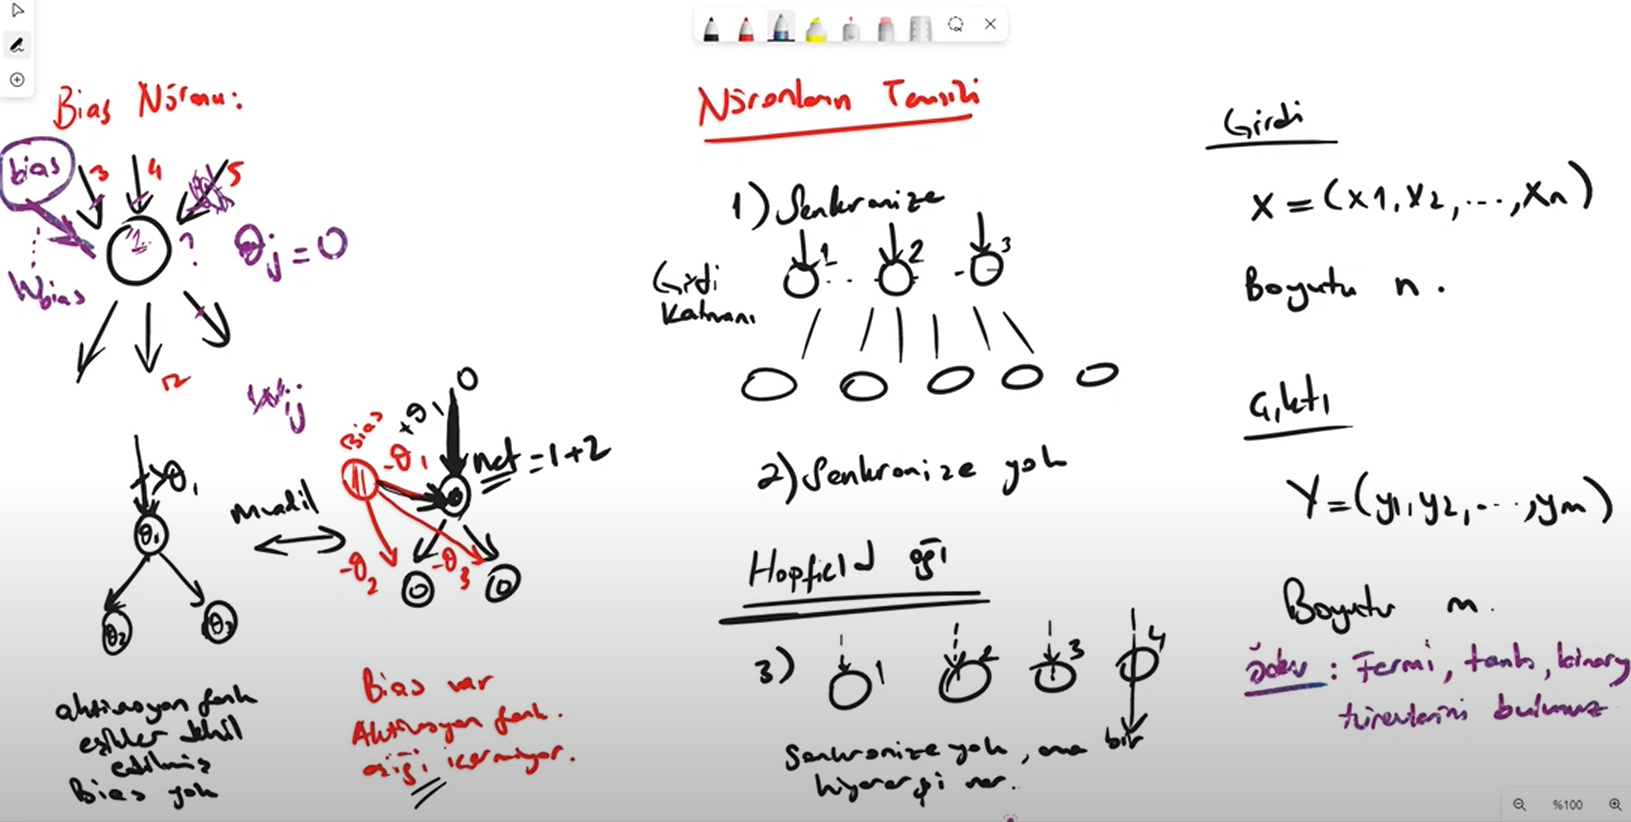 Bias Nöronu:
bias
3
4
5
1
?
θj = 0
Wbias
12
Wij
>θ1
θ1
θ2
θ3
Muadil
Bias
-θ1
+θ1
0
net = 1+2
-θ2
-θ3
0
0
aktivasyon fonk
eşikler dahil
edilmiş
Bias yok
Bias var
Aktivasyon fonk.
eşiği içermiyor.
Nöronların Temsili
1) Senkronize
1
2
3
Girdi
Katmanı
2) Senkronize yok
Hopfield ağı
3)
1
2
3
4
Senkronize yok, ama bir
hiyerarşi var.
Girdi
X = (x1, x2, ..., xn)
Boyutu n.
Çıktı
Y = (y1, y2, ..., ym)
Boyutu m.
Ödev: Fermi, tanh, binary
türevlerini bulunuz
%100